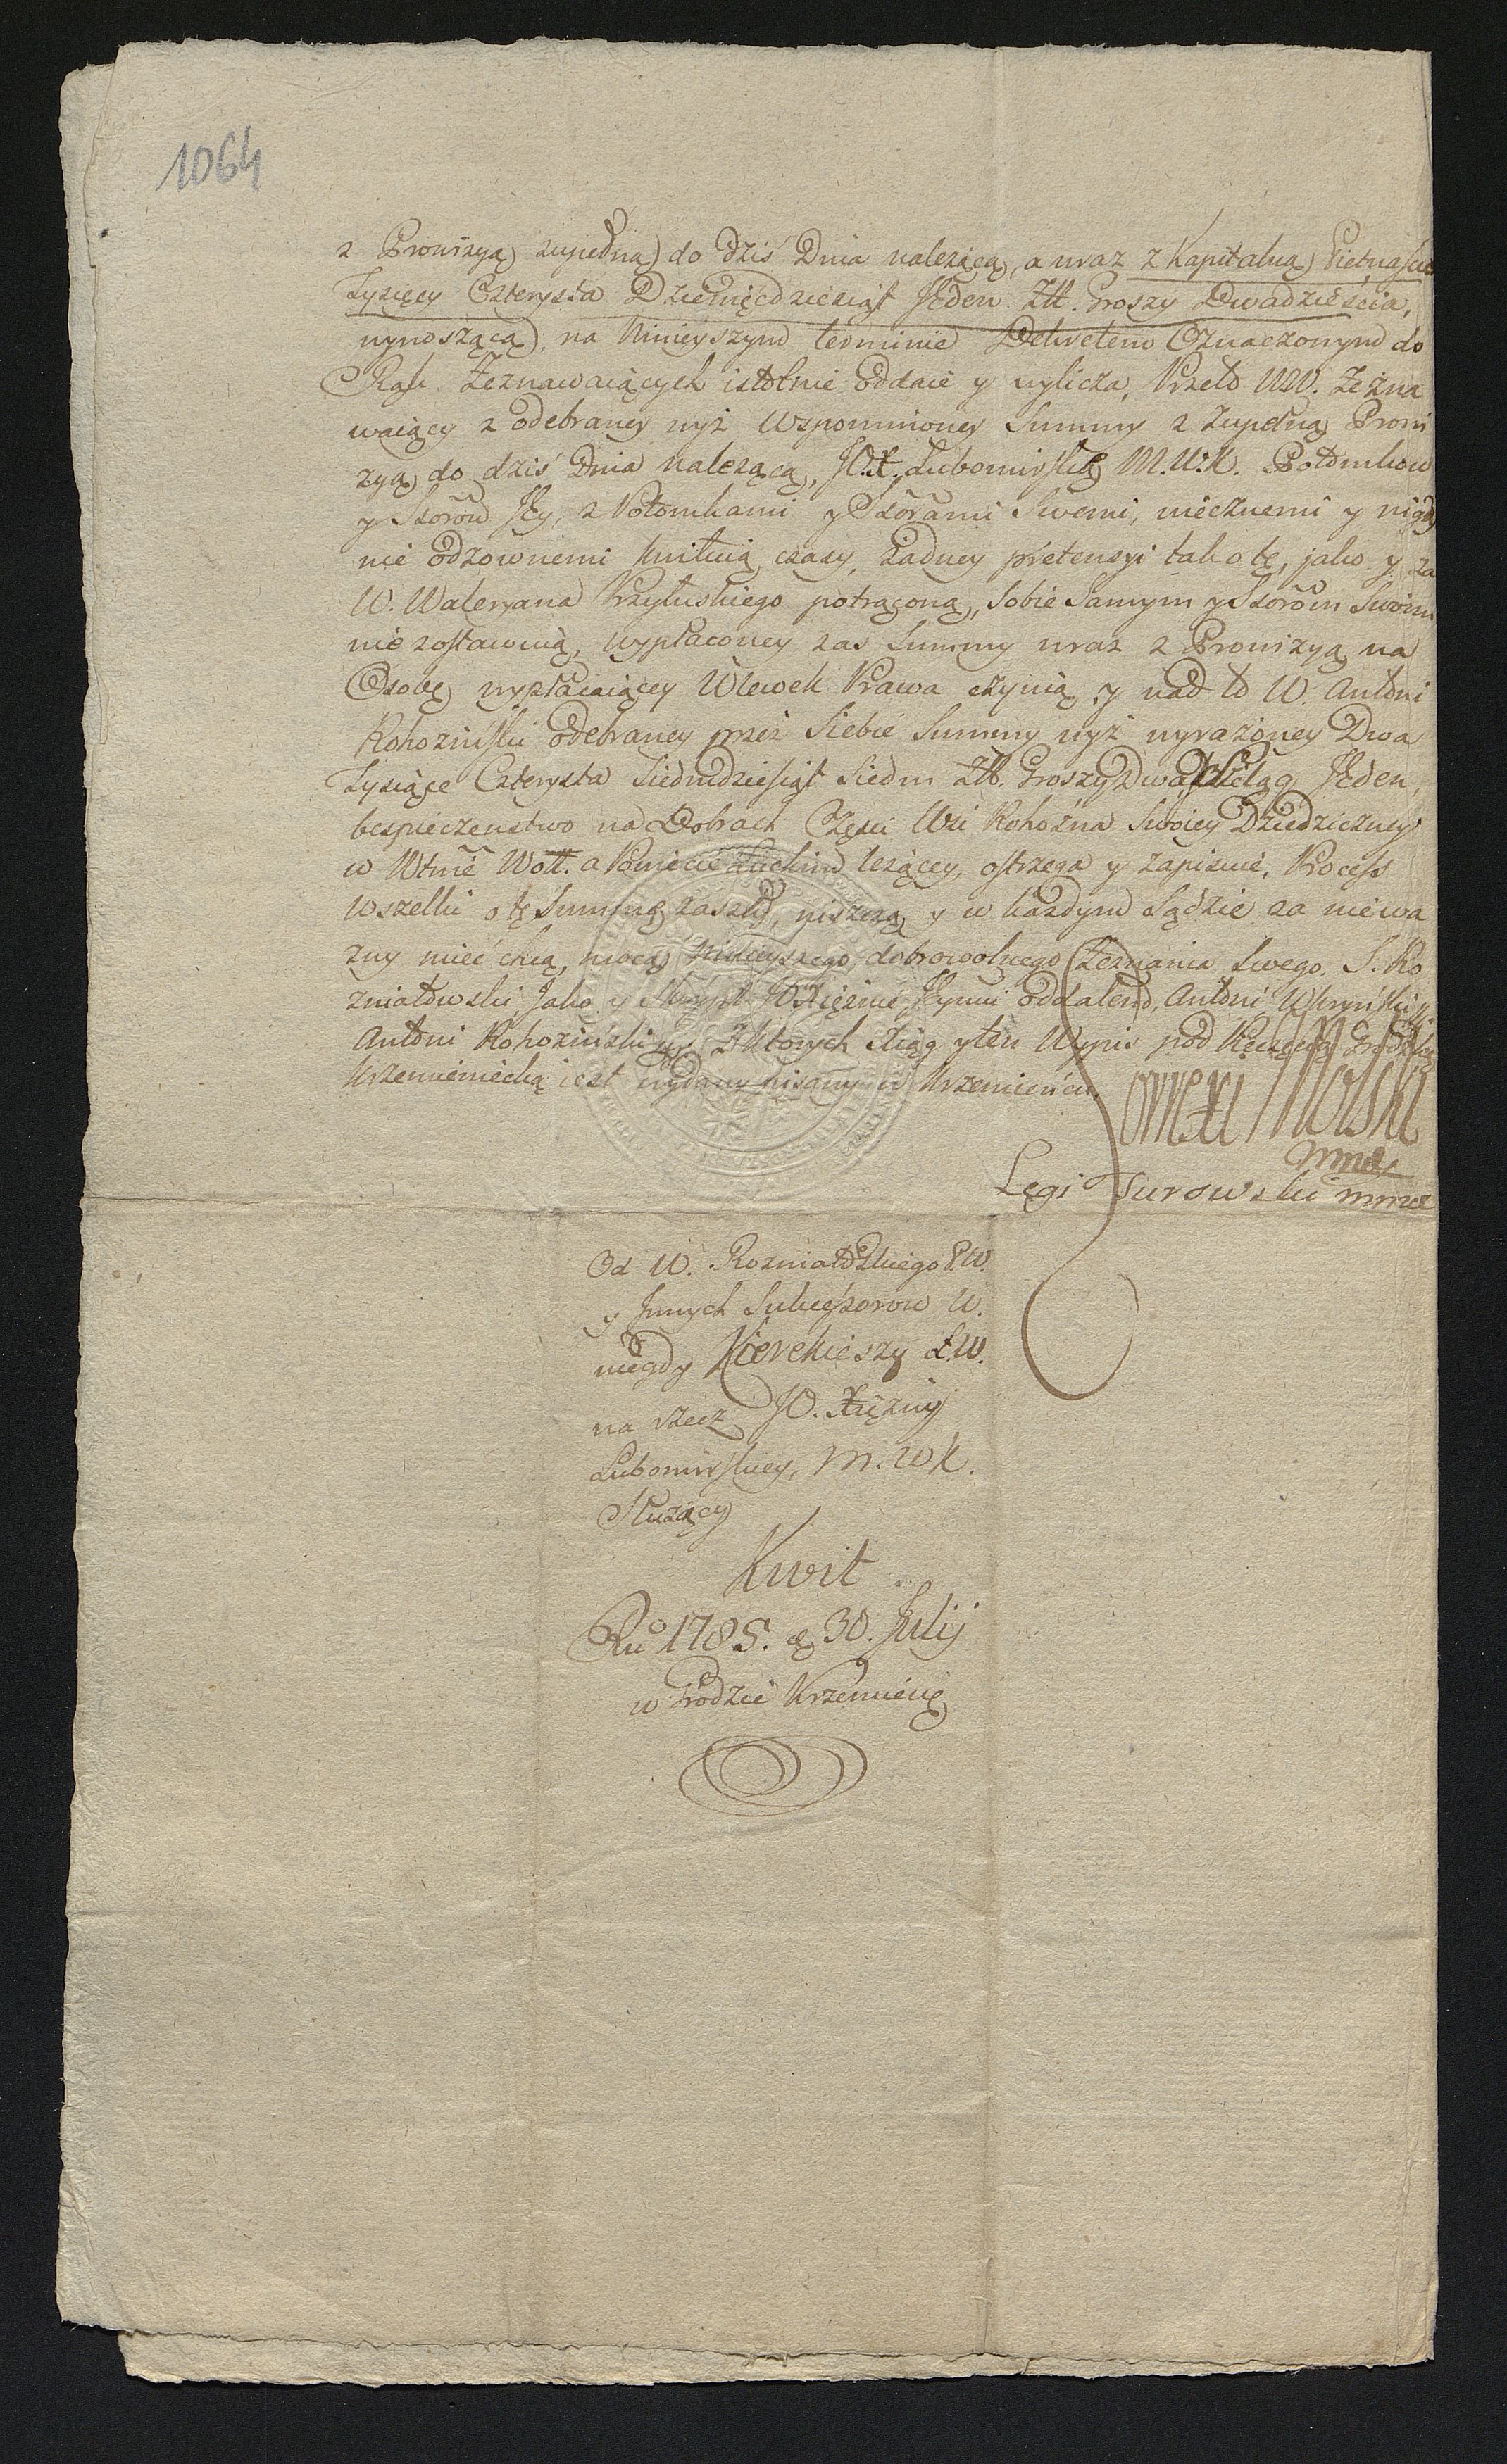 1064
z Prowizyą zupełną do dziś Dnia należącą, a wraz z Kapitalną Pietnaście
Tysięcy Czterysta Dziewięćdziesiąt Jeden Złł. Groszy Dwadzieścia,
wynoszącą, na Ninieyszym terminie Dekretem Oznaczonym do
Rąk Zeznawaiących istotnie oddaie y wylicza, Przeto WW. Zezna
waiący z odebraney wyż Wspomnioney Summy z Zupełną Prowi
zyą do dziś Dnia należącą, JO. X. Lubomirską M.W.K. Potomkow
y Sżorow Jey, z Potomkami y Sżorami Swemi, wiecznemi y nigdy
nie odzownemi kwituią czasy, żadney pretensyi tak o tę, jako y za
W. Waleryana Krzyluskiego potrąconą, Sobie Samym y Sżorom Swoim
nie zostawuią, wypłaconey zas Summy wraz z Prowizyą na
Osobę wypłacaiącey Wlewek Prawa czynią, y nad to W. Antoni
Rohoziński odebraney przez Siebie Summy wyż wyrażoney Dwa
Tysiące Czterysta Siedmdziesiąt Siedm Złł. Groszy Dwa Szeląg Jeden,
bespieczenstwo na Dobrach Części Wsi Rohoźna Swoiey Dziedziczney
w Wtwie Wołł. a Powiecie Łuckim leżącey, ostrzega y zapisuie, Process
Wszelki o tę Summę zaszły, niszczą y w każdym Sądzie za niewa
żny mieć chcą, mocą Ninieyszego dobrowolnego Zeznania Swego. J. Ro
zniatowski, Jako y Skrypt JO Xiężnie Jeymci oddalem, Antoni
Antoni Rohoziński Z Ktorych Xiąg y ten Wypis pod Pieczęcią Grodzką
Krzemieniecką iest wydany pisany w Krzemieńcu.
Correxi Wolski
mmp
Legi Turowski mmp
Od W. Rozniatowskiego P.W.
y Jnnych Sukcessorow W.
niegdy Kierekieszy Ł.W.
na rzecz JO. Xiężny
Lubomirskiey, M.W.K.
Służący
Kwit
Ru 1785. d. 30. Julij
w Grodzie Krzemienie